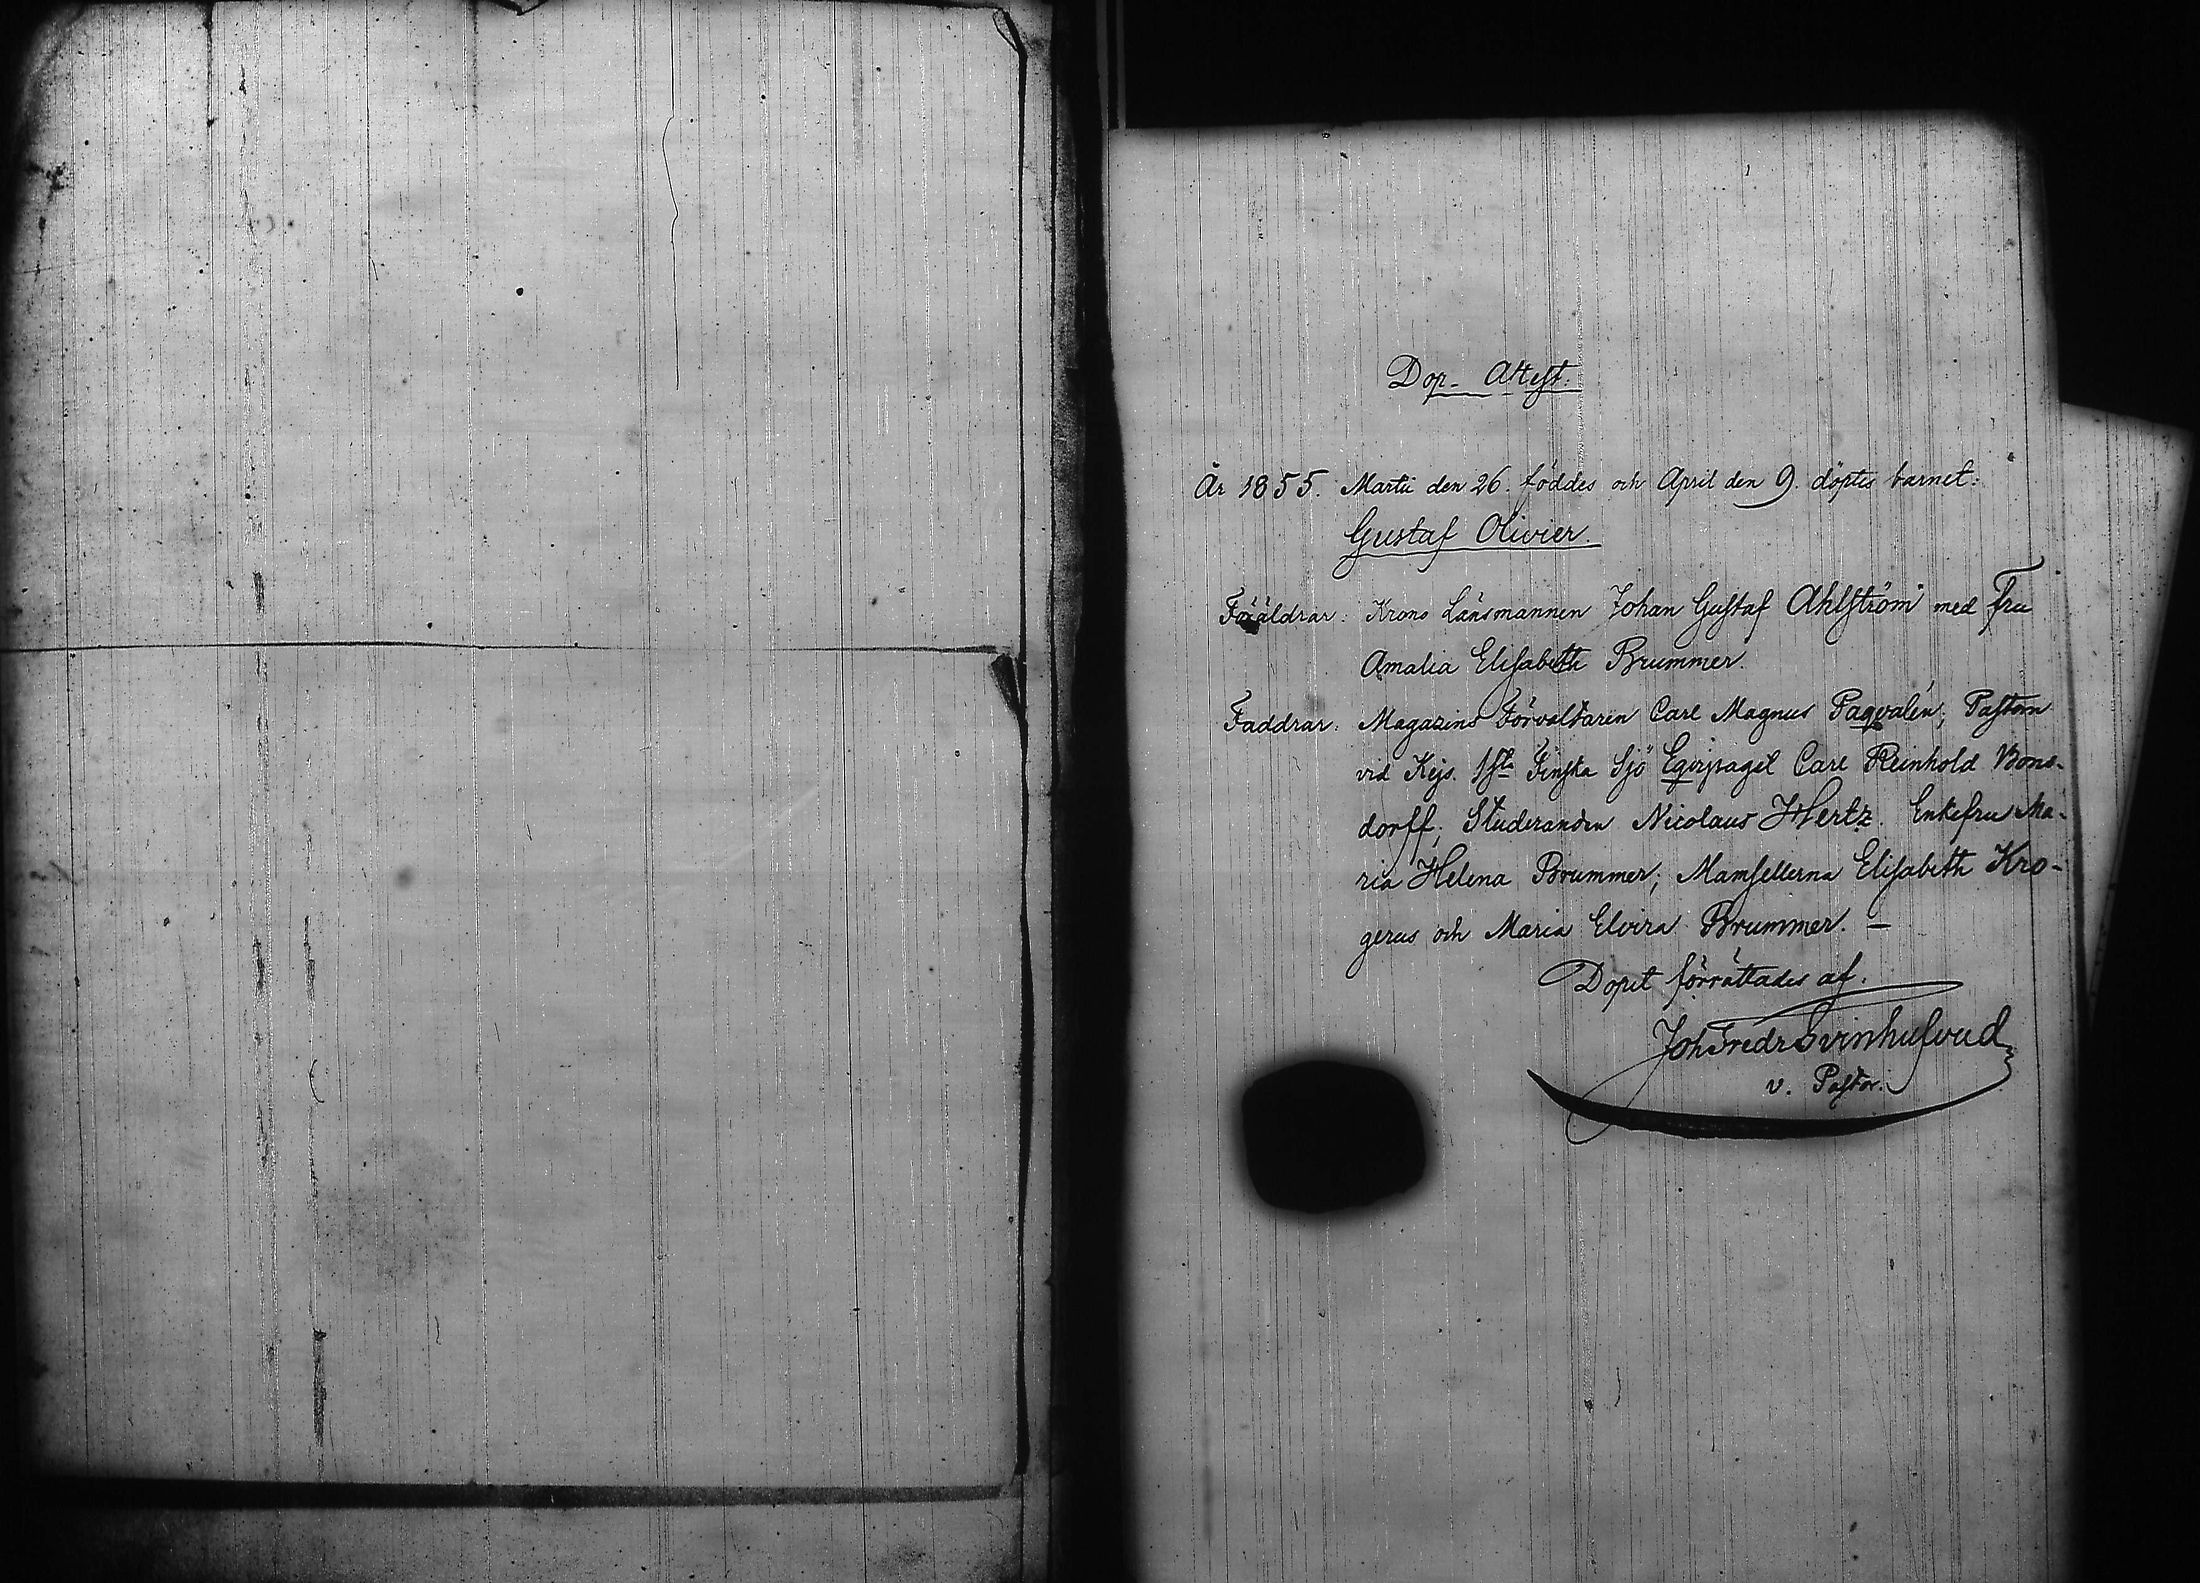 Dop- Attest.
År 1855. Martii den 26. föddes och April den 9. döptes barnet:
Gustaf Olivier.
Föräldrar: Krono Länsmannen Johan Gustaf Ahlström med Fru
Amalia Elisabeth Brummer.
Faddrar: Magazins Förvaltaren Carl Magnus Paqvalén; Pastorn
vid Kejs. 1sta Finska Sjö Eqvipaget Carl Reinhold Bons-
dorff; Studeranden Nicolaus Hertz. Enkefru Ma-
ria Helena Brummer; Mamsellerna Elisabeth Kro-
gerus och Maria Elvira Brummer. —
Dopet förrättades af.
Joh Fredr Svinhufvud
v. Pastor.